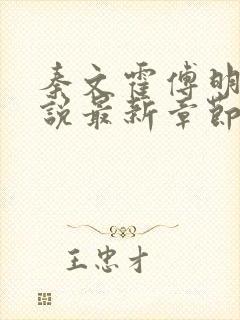 秦文霍傅明
說最新章節
王忠才